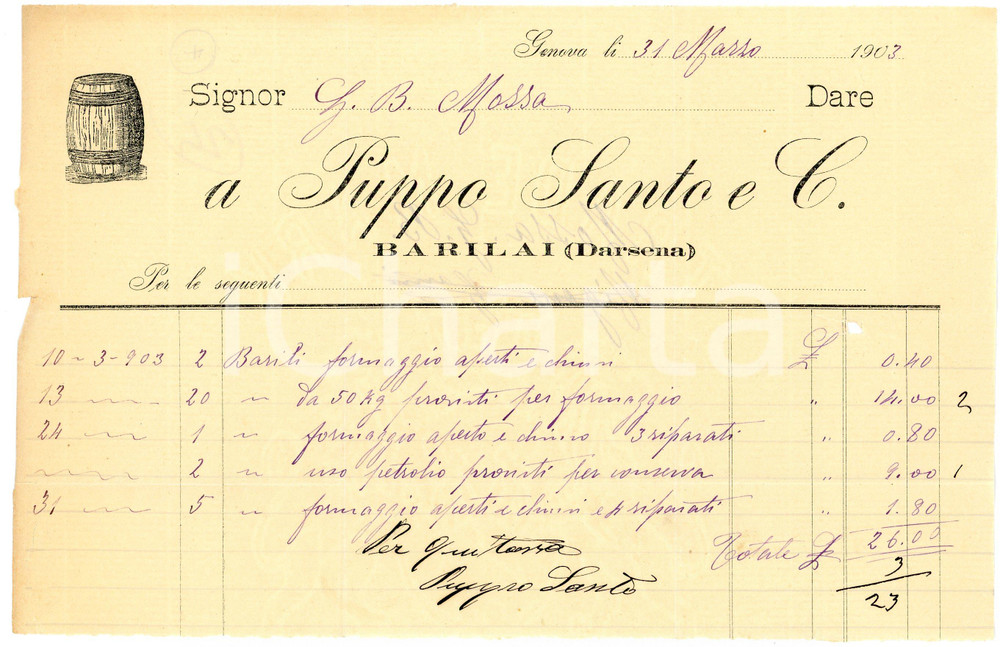 Genova li 31 Marzo 1903
Signor G. B. Mossa Dare
a Puppo Santo e C.
BARILAI (Darsena)
Per le seguenti
10-3-903 2 Barili formaggio aperti e chiusi £ 0.40
13 " " 20 " da 50 Kg provisti per formaggio " 14.00 2
24 " " 1 " formaggio aperto e chiuso 3 riparati " 0.80
" " 2 " uso petrolio provisti per conserva " 9.00 1
31 " " 5 " formaggio aperti e chiusi e 4 riparati " 1.80
Totale £ 26.00
Per quitanza 3
Puppo Santo 23
iCharta